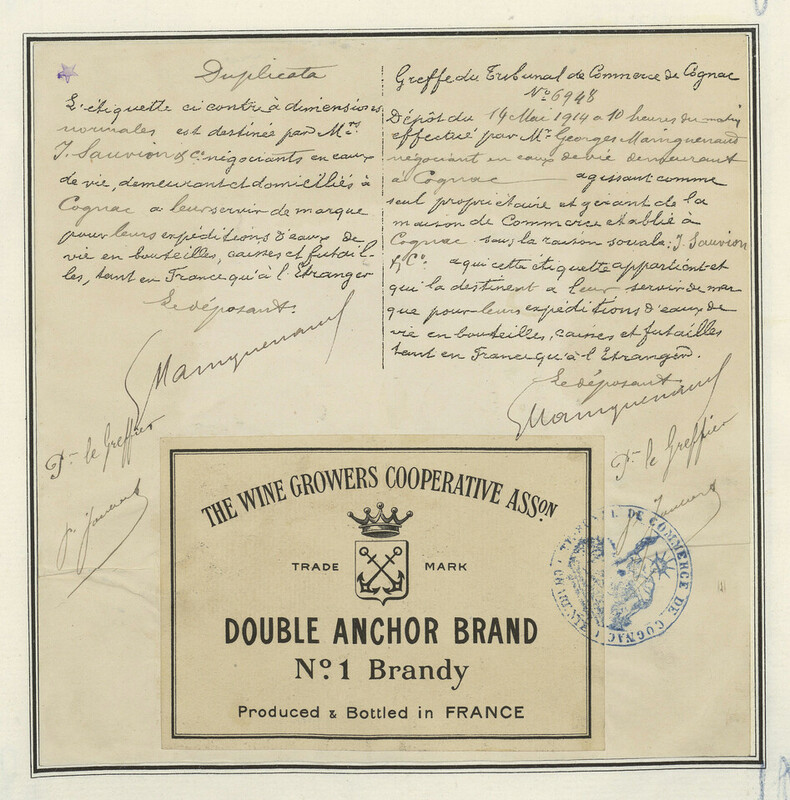 Duplicata
L'étiquette ci contre à dimensions
normales est destinée par Mrs
J. Sauvion & Cie négociants en eaux
de vie, demeurant et domiciliés à
Cognac a leur servir de marque
pour leurs expéditions d'eaux de
vie en bouteilles, caisses et futail-
les, tant en France qu'à l'Etranger
Le déposant.
GMainguenaud
Pr le Greffier
Greffe du Tribunal de Commerce de Cognac
No 6948
Dépôt du 14 Mai 1914 a 10 heures du matin
effectué par Mr Georges Mainguenaud
négociant en eaux de vie demeurant
à Cognac agissant comme
seul propriétaire et gérant de la
maison de Commerce etablie à
Cognac sous la raison sociale: J. Sauvion
& Co a qui cette étiquette appartient et
qui la destinent a leur servir de mar
que pour leurs expéditions d'eaux de
vie en bouteilles, caisses et futailles
tant en France qu'à l'Etranger.
Le déposant
GMainguenaud
Pr le Greffier
THE WINE GROWERS COOPERATIVE ASSON
TRADE MARK
DOUBLE ANCHOR BRAND
No. 1 Brandy
Produced & Bottled in FRANCE
TRIBUNAL DE COMMERCE DE COGNAC